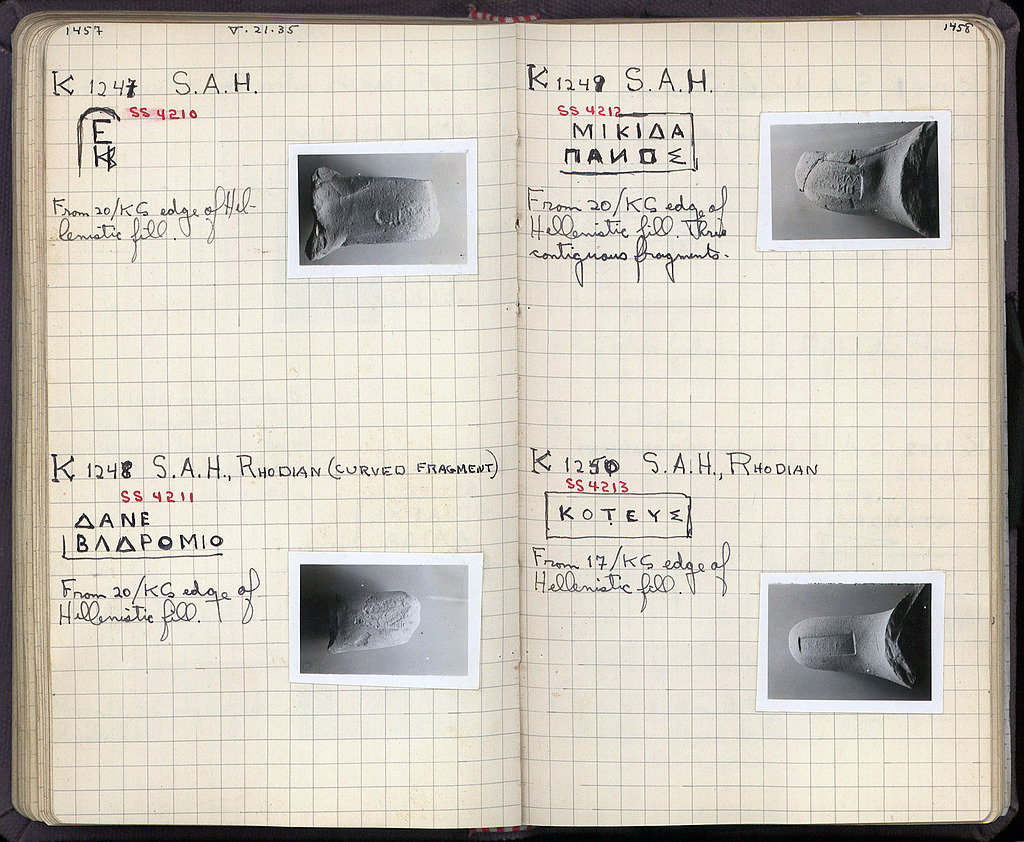 1457
V.21.35
K 1247 S.A.H.
SS 4210
Ε
From 20/KS edge of Hel-
lenistic fill.
K 1248 S.A.H., RHODIAN (CURVED FRAGMENT)
SS 4211
ΔΑΝΕ
ΒΛΔΡΟΜΙΟ
From 20/KS edge of
Hellenistic fill.
1458
K 1249 S.A.H.
SS 4212
ΜΙΚΙΔΑ
ΠΑΝΟΣ
From 20/KS edge of
Hellenistic fill. Three
contiguous fragments.
K 1250 S.A.H., RHODIAN
SS 4213
ΚΟΤΕΥΣ
From 17/KS edge of
Hellenistic fill.